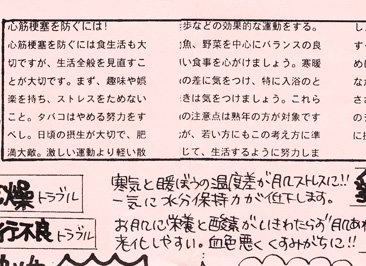 心筋梗塞を防ぐには!
心筋梗塞を防ぐには食生活も大
切ですが、生活全般を見直すこ
とが大切です。まず、趣味や娯
楽を持ち、ストレスをためない
こと。タバコはやめる努力をす
べし。日頃の摂生が大切で、肥
満大敵。激しい運動より軽い散
歩などの効果的な運動をする。
魚、野菜を中心にバランスの良
い食事を心がけましょう。寒暖
の差に気をつけ、特に入浴のと
きは気をつけましょう。これら
の注意点は熟年の方が対象です
が、若い方にもこの考え方に準
じて、生活するように努力しま
燥トラブル
寒気と暖ぼうの温度差が肌にストレスに!!
一気に水分保持力が低下します。
行不良トラブル
お肌に栄養と酸素がいきわたらず肌あれ
老化しやすい。血色悪くくすみがちに!!